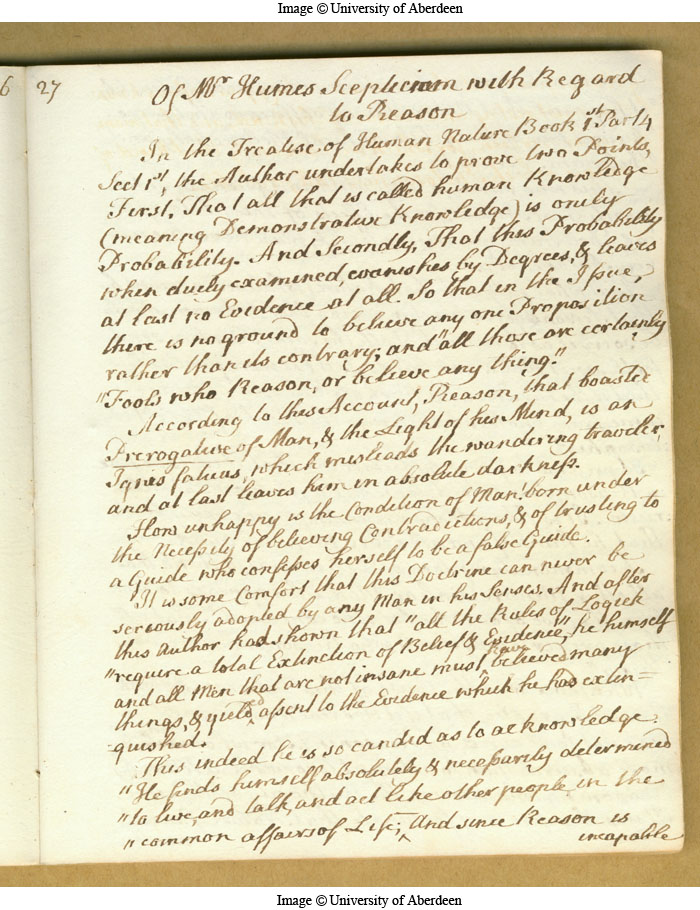 Image © University of Aberdeen
6 27
Of Mr Humes Scepticism with Regard
to Reason
In the Treatise of Human Nature Book 1st Part 4
Sect 1st, the Author undertakes to prove two Points,
First, That all that is called human Knowledge
(meaning Demonstrative Knowledge) is onely
Probability. And Secondly, That this Probability
when duely examined, evanishes by Degrees, & leaves
at last no Evidence at all. So that in the Issue,
there is no ground to believe any one Proposition
rather than its contrary; and "all those are certainly
"Fools who Reason, or believe any thing."
According to this Account, Reason, that boasted
Prerogative of Man, & the Light of his Mind, is an
Ignis fatuus, which misleads the wandering traveler,
and at last leaves him in absolute darkness.
How unhappy is the Condition of Man! born under
the Necessity of believing Contradictions, & of trusting to
a Guide who confesses herself to be a false Guide.
It is some Comfort that this Doctrine can never be
seriously adopted by any Man in his Senses. And after
this Author had shown that "all the Rules of Logick
"require a total Extinction of Belief & Evidence", he himself
and all Men that are not insane must have believed many
things, & yielded assent to the Evidence which he had extin=
=quished.
This indeed he is so candid as to acknowledge.
"He finds himself absolutely & necessarily determined
"to live, and talk, and act like other people in the
"common affairs of Life; And since Reason is
incapable
Image © University of Aberdeen